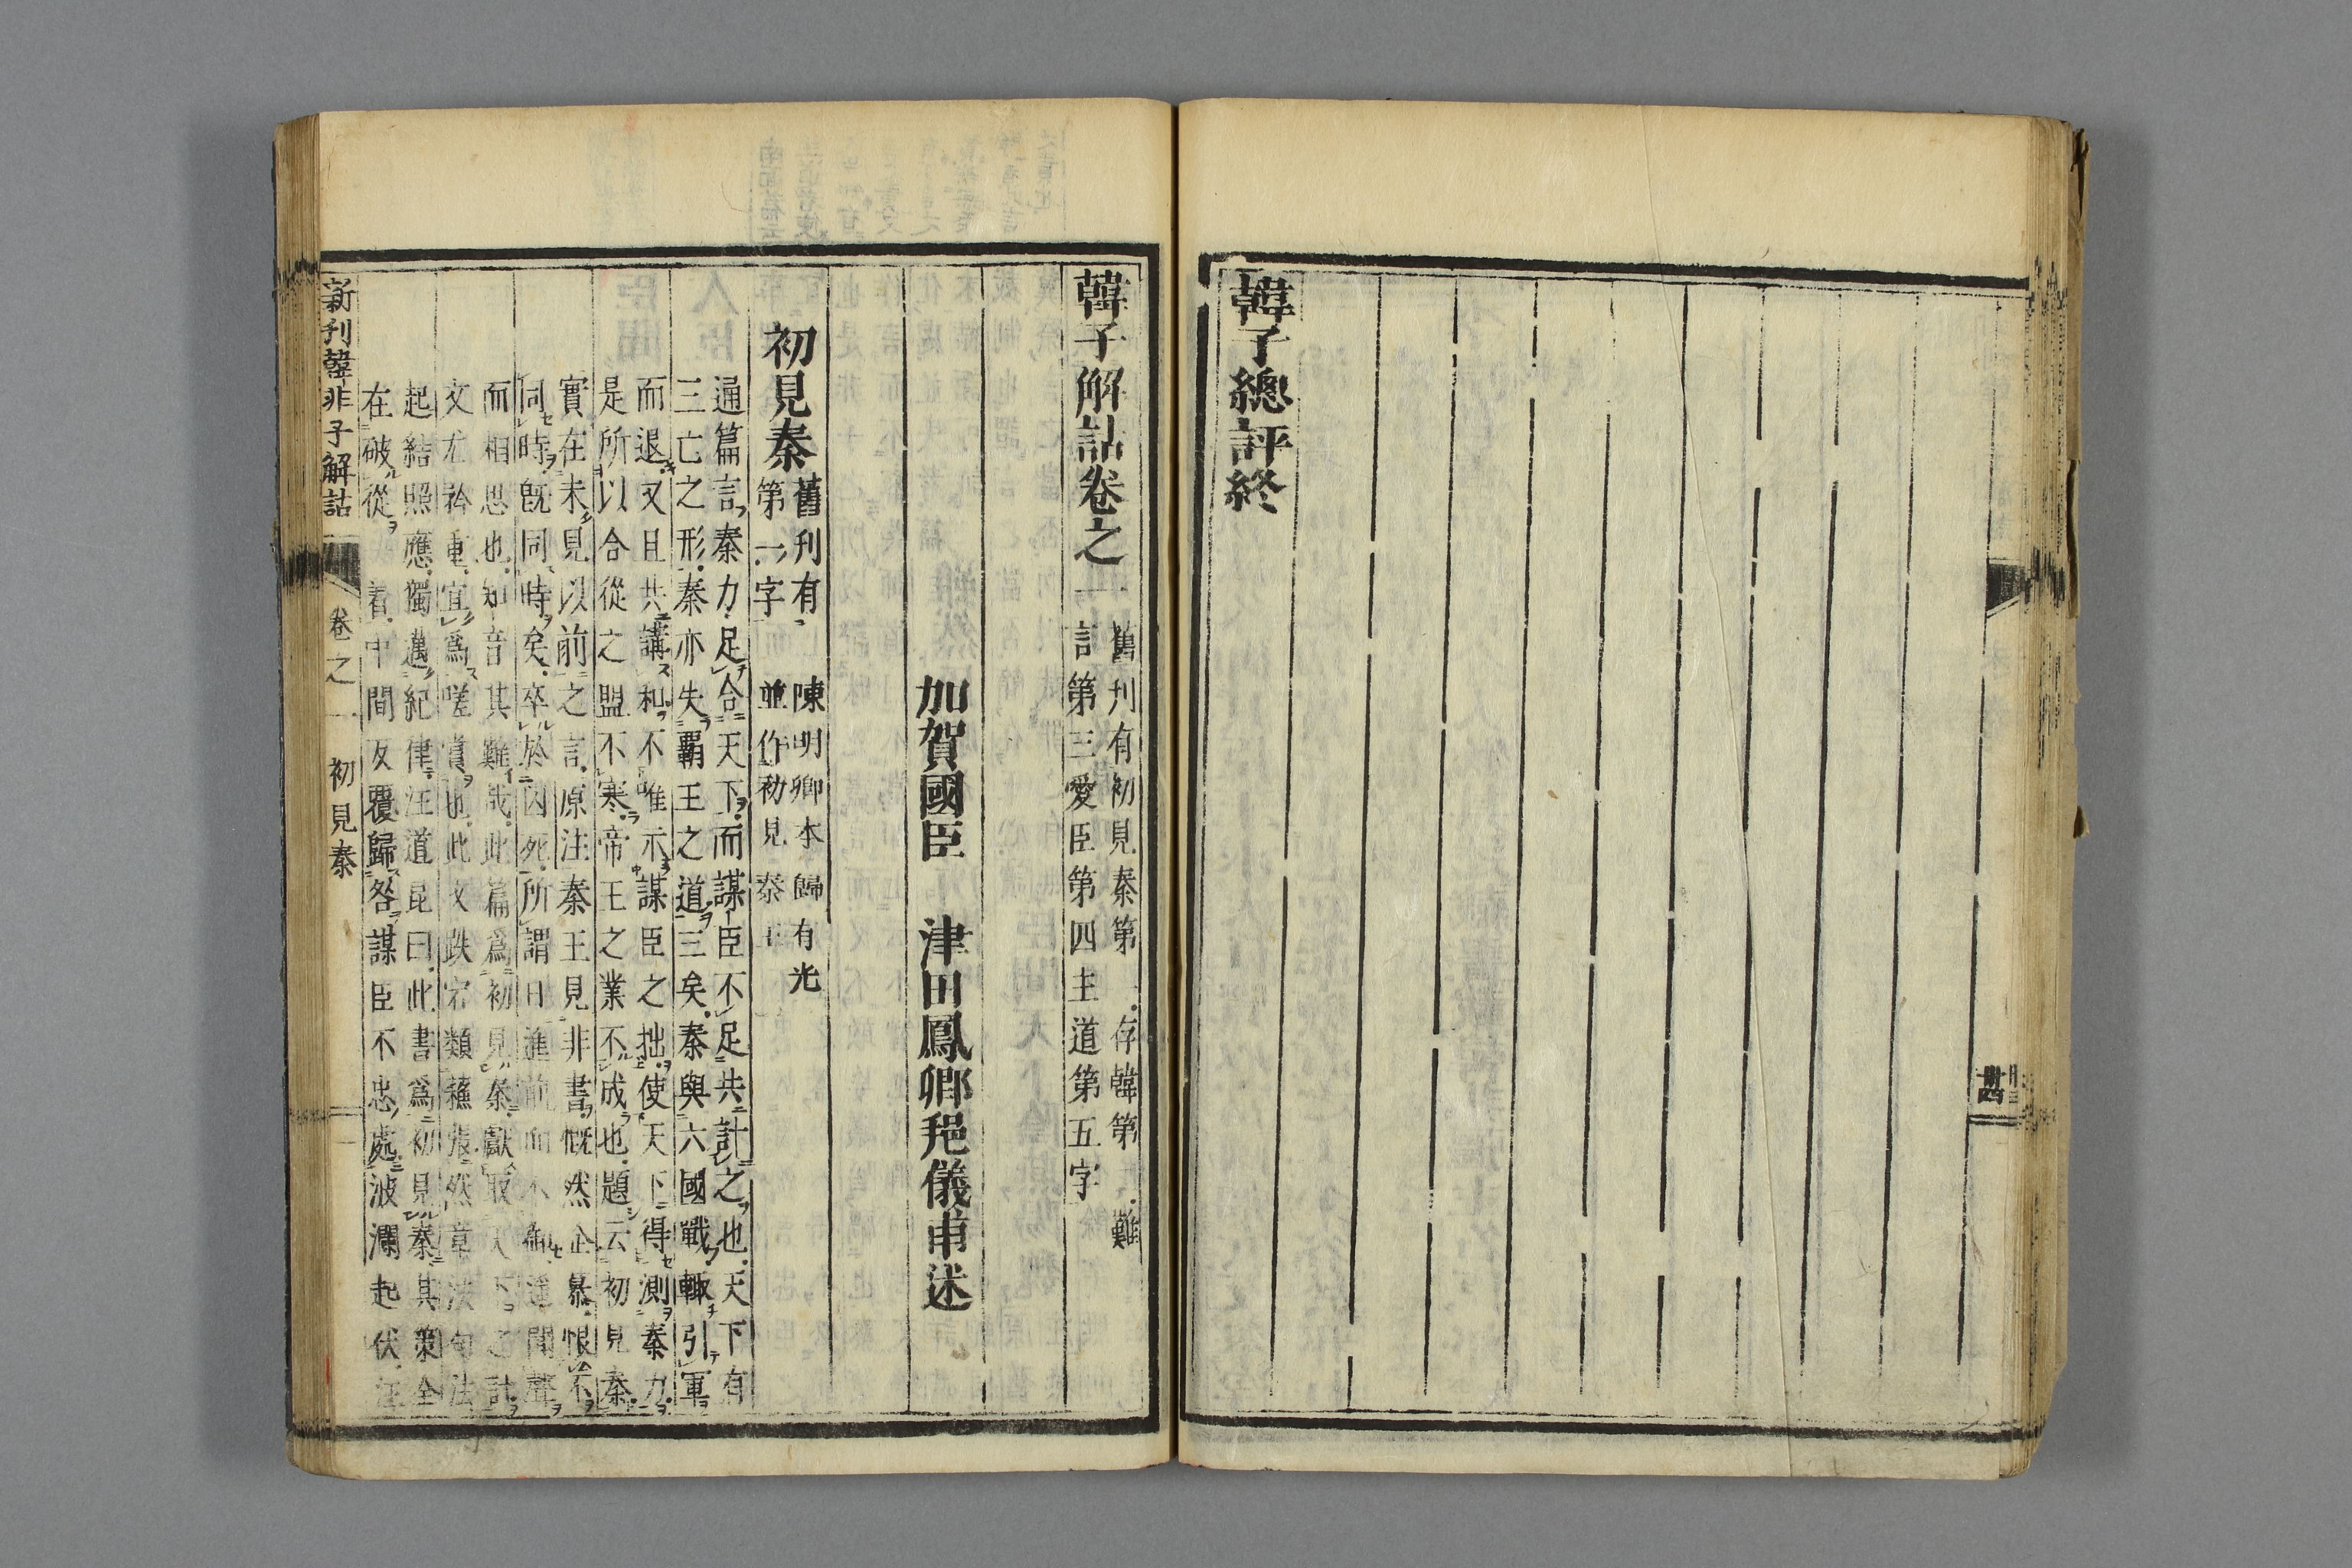 韓子總評終
韓子解詁卷之一
舊刊有初見秦第一存韓第二難
言第三愛臣第四主道第五字
加賀國臣　津田鳳卿邦儀甫述
初見秦
舊刊有
第一字
陳明卿本歸有光
並作初見秦王
通篇言秦力足合天下而謀臣不足共計之也天下有
三亡之形秦亦失霸王之道三矣秦與六國戰輙引軍
而退又且共講和不唯示謀臣之拙使天下得測秦力
是所以合從之盟不寒帝王之業不成也題云初見秦
實在未見以前之言原注秦王見非書慨然企暴恨不
同時旣同時矣卒於囚死所謂日進前而不御遥聞聲
而相思也知音其難哉此篇爲初見秦獻取天下之計
文尤矜重宜爲嗟賞也此文跌宕類蘇張然章法句法
起結照應獨邁紀律汪道昆曰此書爲初見秦其策全
在破從　着中間反覆歸咎謀臣不忠處波瀾起伏汪
新刊韓非子解詁　卷之一　初見秦　一